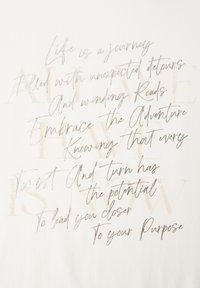 Life is a journey
Filled with unexpected detours
And winding Roads
Embrace the Adventure
Knowing that every
Twist And turn has
the potential
To lead you closer
To your Purpose